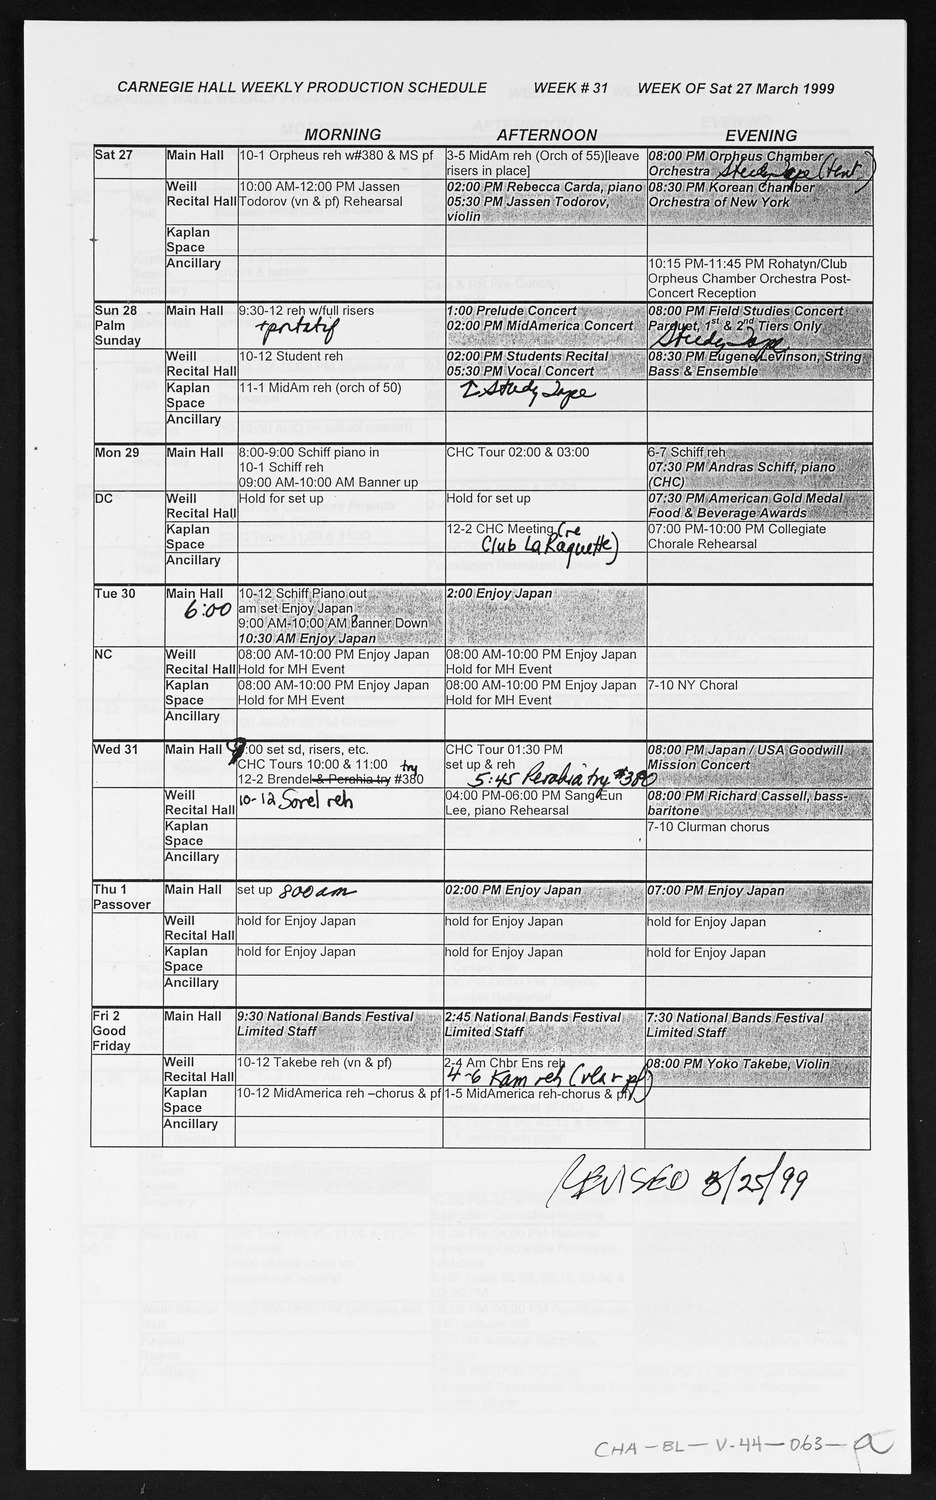 CARNEGIE HALL WEEKLY PRODUCTION SCHEDULE WEEK # 31 WEEK OF Sat 27 March 1999
MORNING AFTERNOON EVENING
Sat 27 Main Hall 10-1 Orpheus reh w#380 & MS pf 3-5 MidAm reh (Orch of 55)[leave 08:00 PM Orpheus Chamber
risers in place] Orchestra Study Tape (tent)
Weill 10:00 AM-12:00 PM Jassen 02:00 PM Rebecca Carda, piano 08:30 PM Korean Chamber
Recital Hall Todorov (vn & pf) Rehearsal 05:30 PM Jassen Todorov, Orchestra of New York
violin
Kaplan
Space
Ancillary 10:15 PM-11:45 PM Rohatyn/Club
Orpheus Chamber Orchestra Post-
Concert Reception
Sun 28 Main Hall 9:30-12 reh w/full risers 1:00 Prelude Concert 08:00 PM Field Studies Concert
Palm +portatif 02:00 PM MidAmerica Concert Parquet, 1st & 2nd Tiers Only
Sunday Study Tape
Weill 10-12 Student reh 02:00 PM Students Recital 08:30 PM Eugene Levinson, String
Recital Hall 05:30 PM Vocal Concert Bass & Ensemble
Kaplan 11-1 MidAm reh (orch of 50) ↑ Study Tape
Space
Ancillary
Mon 29 Main Hall 8:00-9:00 Schiff piano in CHC Tour 02:00 & 03:00 6-7 Schiff reh
10-1 Schiff reh 07:30 PM Andras Schiff, piano
09:00 AM-10:00 AM Banner up (CHC)
DC Weill Hold for set up Hold for set up 07:30 PM American Gold Medal
Recital Hall Food & Beverage Awards
Kaplan 12-2 CHC Meeting (re 07:00 PM-10:00 PM Collegiate
Space Club La Raquette) Chorale Rehearsal
Ancillary
Tue 30 Main Hall 10-12 Schiff Piano out 2:00 Enjoy Japan
6:00 am set Enjoy Japan
9:00 AM-10:00 AM Banner Down
10:30 AM Enjoy Japan
NC Weill 08:00 AM-10:00 PM Enjoy Japan 08:00 AM-10:00 PM Enjoy Japan
Recital Hall Hold for MH Event Hold for MH Event
Kaplan 08:00 AM-10:00 PM Enjoy Japan 08:00 AM-10:00 PM Enjoy Japan 7-10 NY Choral
Space Hold for MH Event Hold for MH Event
Ancillary
Wed 31 Main Hall 9:00 set sd, risers, etc. CHC Tour 01:30 PM 08:00 PM Japan / USA Goodwill
CHC Tours 10:00 & 11:00 try set up & reh Mission Concert
12-2 Brendel & Perahia try #380 5:45 Perahia try #380
Weill 10-12 Sorel reh 04:00 PM-06:00 PM Sang-Eun 08:00 PM Richard Cassell, bass-
Recital Hall Lee, piano Rehearsal baritone
Kaplan 7-10 Clurman chorus
Space
Ancillary
Thu 1 Main Hall set up 800am 02:00 PM Enjoy Japan 07:00 PM Enjoy Japan
Passover
Weill hold for Enjoy Japan hold for Enjoy Japan hold for Enjoy Japan
Recital Hall
Kaplan hold for Enjoy Japan hold for Enjoy Japan hold for Enjoy Japan
Space
Ancillary
Fri 2 Main Hall 9:30 National Bands Festival 2:45 National Bands Festival 7:30 National Bands Festival
Good Limited Staff Limited Staff Limited Staff
Friday
Weill 10-12 Takebe reh (vn & pf) 2-4 Am Chbr Ens reh 08:00 PM Yoko Takebe, Violin
Recital Hall 4-6 Kam reh (vla + pf)
Kaplan 10-12 MidAmerica reh –chorus & pf 1-5 MidAmerica reh-chorus & pf
Space
Ancillary
REVISED 3/25/99
CHA-BL-V-44-063-a